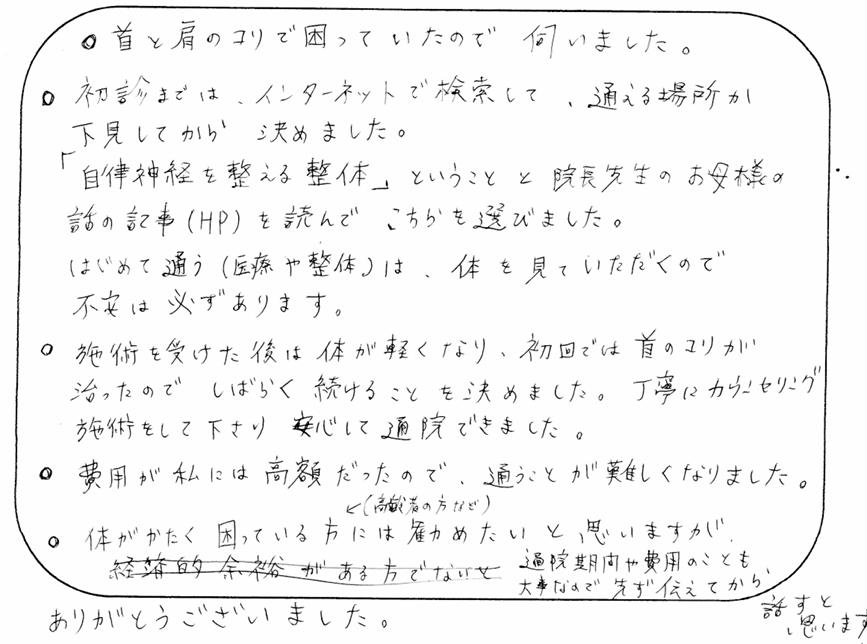 首と肩のコリで困っていたので 伺いました。
初診までは、インターネットで検索して、通える場所か
下見してから 決めました。
「自律神経を整える整体」ということと院長先生のお母様の
話の記事(HP)を読んで こちらを選びました。
はじめて通う(医療や整体)は、体を見ていただくので
不安は必ずあります。
施術を受けた後は体が軽くなり、初回では首のコリが
治ったので しばらく続けることを決めました。丁寧にカウンセリング
施術をして下さり 安心して通院できました。
費用が私には高額だったので、通うことが難しくなりました。
↙(高齢者の方など)
体がかたく困っている方には勧めたいと思いますが、
経済的余裕がある方でないと
通院期間や費用のことも
大事なので先ず伝えてから、
話すと
思います
ありがとうございました。